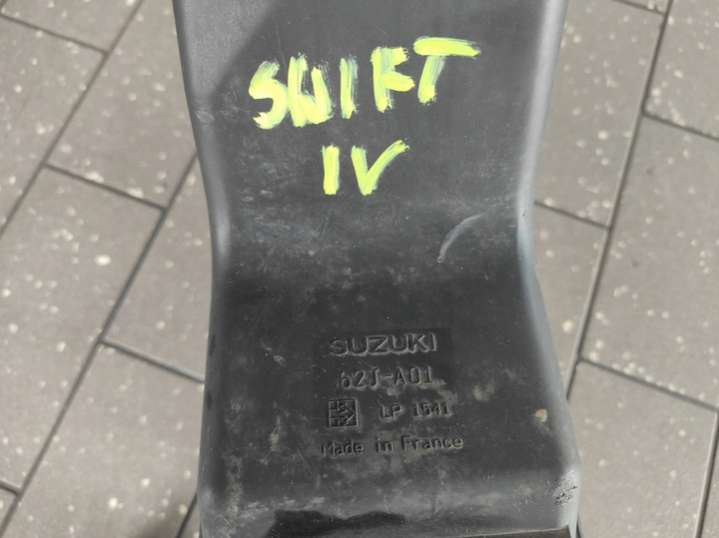 SWIFT
IV
SUZUKI
62J-A01
LP 1541
Made in France